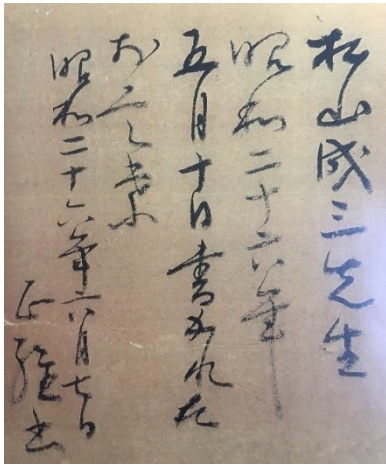 松山成三先生
昭和二十六年
五月十日書かれた
昭和二十六年六月七日
正